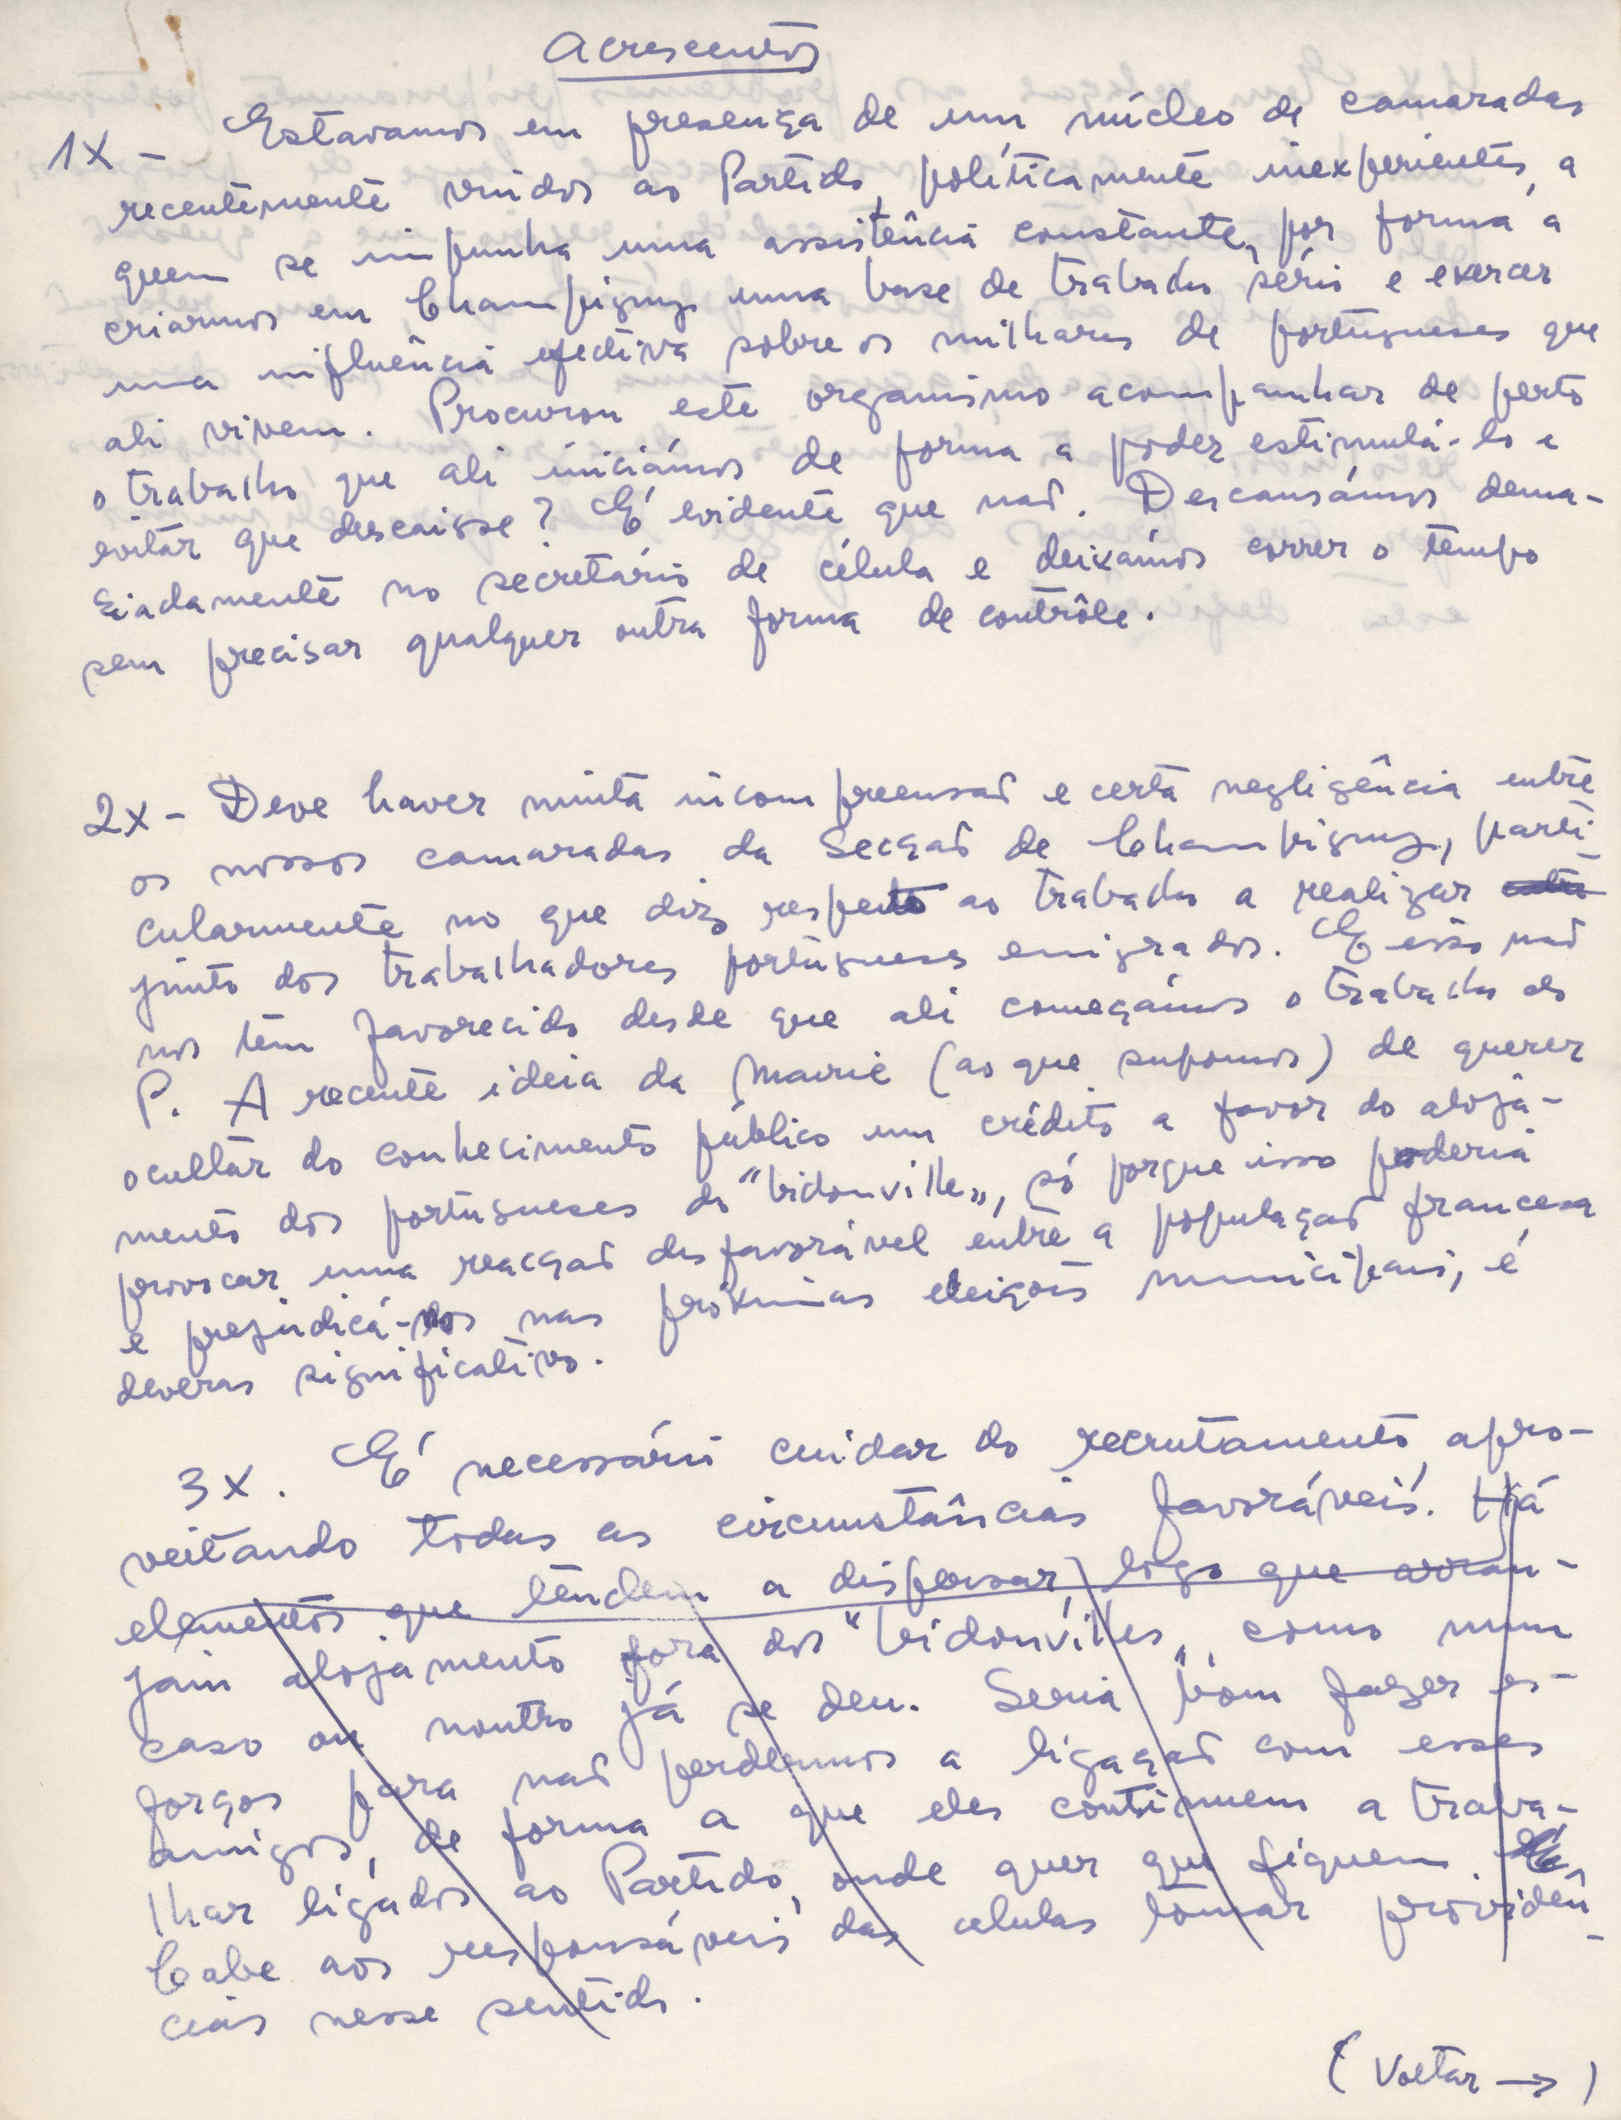 Acrescentos
1X - Estavamos em presença de um núcleo de camaradas
recentemente vindos ao Partido, politicamente inexperientes, a
quem se impunha uma assistência constante, por forma a
criarmos em Champigny uma base de trabalho sério e exercer
uma influência efectiva sobre os milhares de portugueses que
ali vivem. Procurou este organismo acompanhar de perto
o trabalho que ali iniciámos de forma a poder estimulá-lo e
evitar que descaisse? É evidente que não. Descansámos dema-
siadamente no secretário de célula e deixámos correr o tempo
sem precisar qualquer outra forma de contrôle.
2X - Deve haver muita incompreensão e certa negligência entre
os nossos camaradas da Secção de Champigny, parti-
cularmente no que diz respeito ao trabalho a realizar
junto dos trabalhadores portugueses emigrados. E isso não
nos tem favorecido desde que ali começámos o trabalho do
P. A recente ideia da Mairie (ao que supomos) de querer
ocultar do conhecimento público um crédito a favor do aloja-
mento dos portugueses do "bidonville", só porque isso poderia
provocar uma reacção desfavorável entre a população francesa
e prejudicá-los nas próximas eleições municipais, é
deveras significativo.
3X. É necessário cuidar do recrutamento, apro-
veitando todas as circunstâncias favoráveis. Há
elementos que tendem a dispersar, logo que arran-
jam alojamento fora dos "bidonvilles", como num
caso ou noutro já se deu. Seria bom fazer es-
forços para não perdermos a ligação com esses
amigos, de forma a que eles continuem a traba-
lhar ligados ao Partido, onde quer que fiquem.
Cabe aos responsáveis das celulas tomar providên-
cias nesse sentido.
(Voltar →)